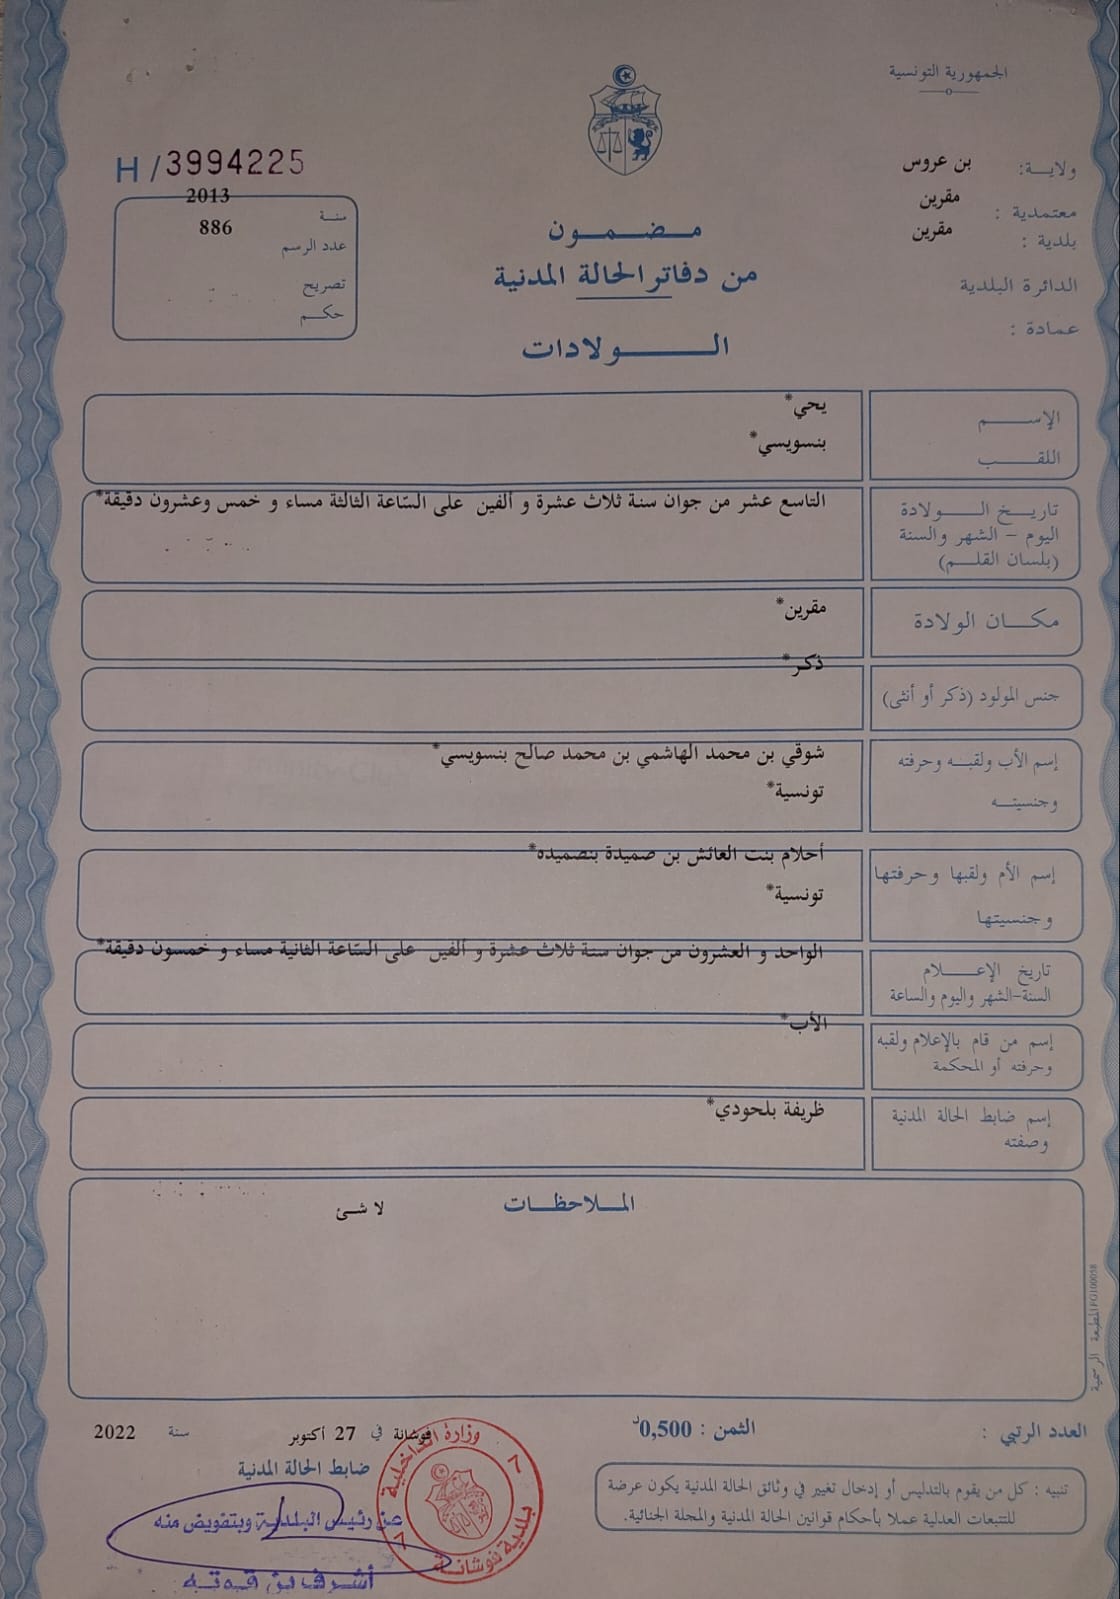 الجمهورية التونسية
ولاية: بن عروس
معتمدية : مقرين
بلدية : مقرين
الدائرة البلدية
عمادة :
H/3994225
سنة 2013
عدد الرسم 886
تصريح
حكم
مضمون
من دفاتر الحالة المدنية
الولادات
الإسم يحي*
اللقب بنسويسي*
تاريخ الولادة
اليوم - الشهر والسنة
(بلسان القلم)
التاسع عشر من جوان سنة ثلاث عشرة و ألفين على السّاعة الثالثة مساء و خمس وعشرون دقيقة*
مكان الولادة مقرين*
جنس المولود (ذكر أو أنثى) ذكر*
إسم الأب ولقبه وحرفته
وجنسيته
شوقي بن محمد الهاشمي بن محمد صالح بنسويسي*
تونسية*
إسم الأم ولقبها وحرفتها
وجنسيتها
أحلام بنت العائش بن صميدة بنصميده*
تونسية*
تاريخ الإعلام
السنة-الشهر واليوم والساعة
الواحد و العشرون من جوان سنة ثلاث عشرة و ألفين على السّاعة الثانية مساء و خمسون دقيقة*
إسم من قام بالإعلام ولقبه
وحرفته أو المحكمة
الأب*
إسم ضابط الحالة المدنية
وصفته
ظريفة بلحودي*
الملاحظات
لا شئ
المطبعة الرسمية
العدد الرتبي :
الثمن : 0,500د
تنبيه : كل من يقوم بالتدليس أو إدخال تغيير في وثائق الحالة المدنية يكون عرضة
للتتبعات العدلية عملا بأحكام قوانين الحالة المدنية والمجلة الجنائية.
فوشانة في 27 أكتوبر سنة 2022
ضابط الحالة المدنية
عن رئيس البلدية وبتفويض منه
أشرف بن قوته
وزارة الداخلية
بلدية فوشانة
7
7